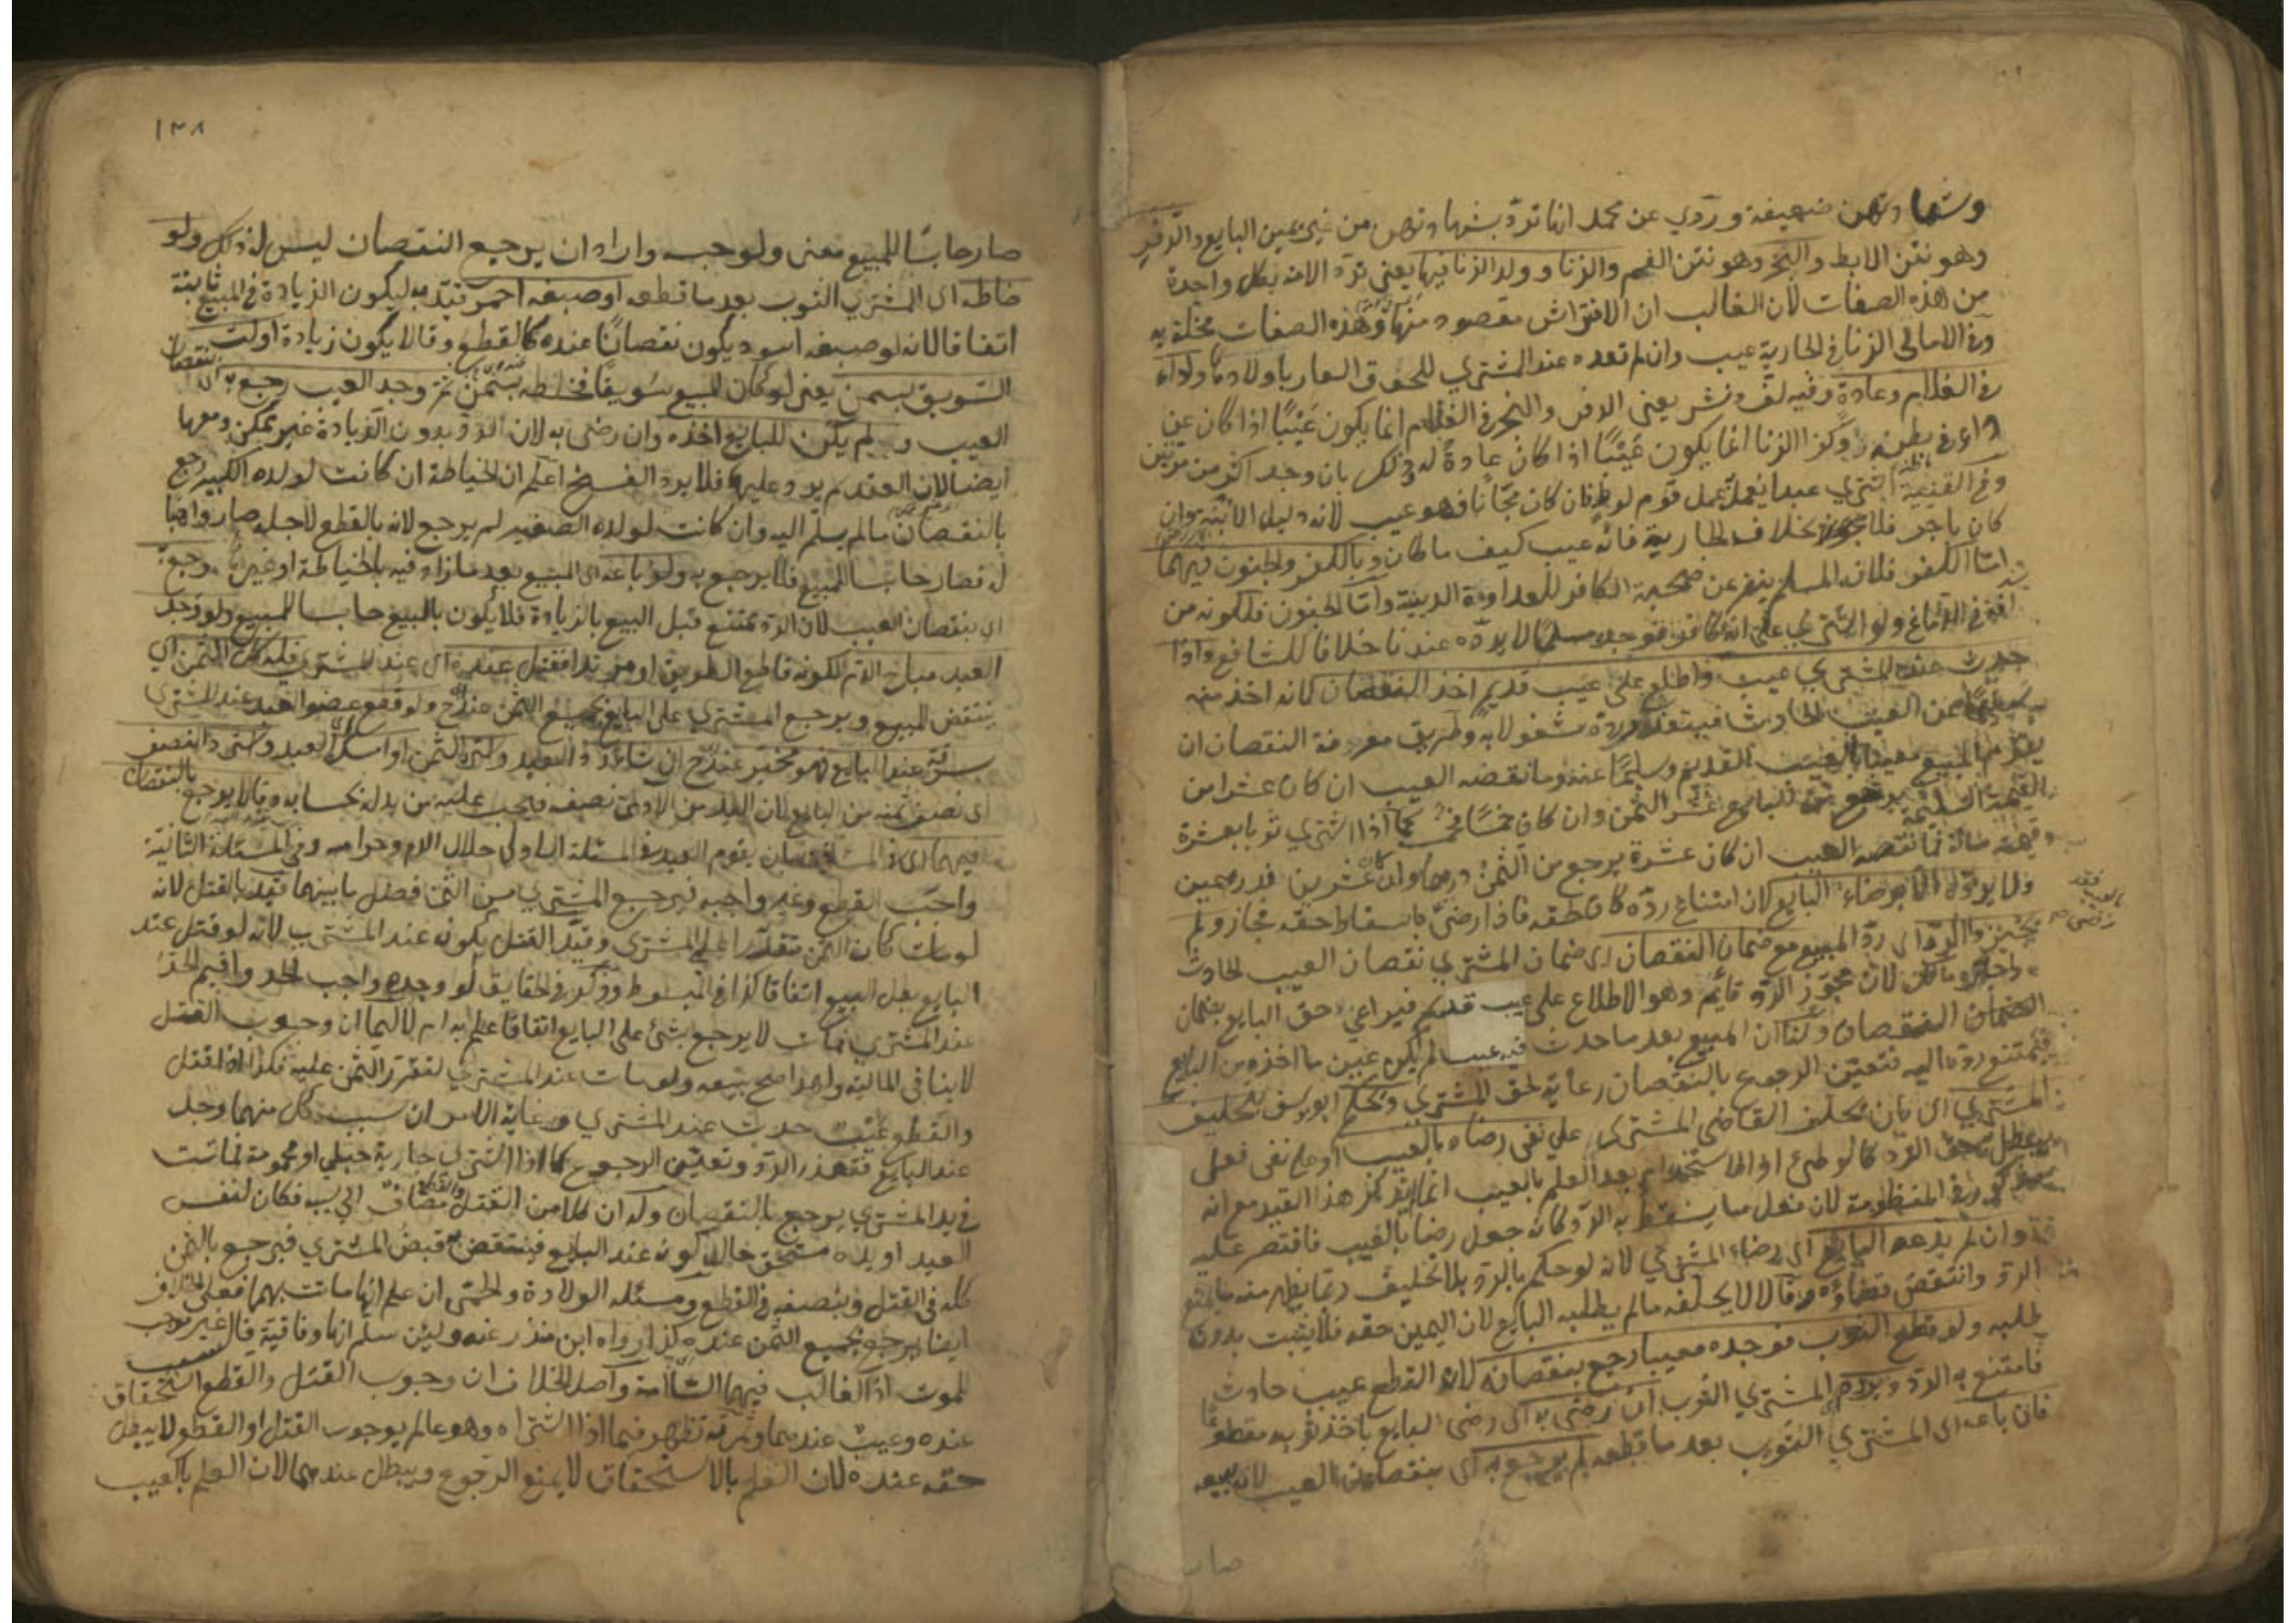 وشهادتهن ضعيفة وروي عن محمد انها ترد بشهادتهن من غير يمين البايع والدفر
وهو نتن الابط والبخر وهو نتن الفم والزنا وولد الزنا فيها يعني ترد الامة بكل واحدة
من هذه الصفات لان الغالب ان الافتراش مقصود منها وهذه الصفات مخلة به
وفي الامالي الزنا في الجارية عيب وان لم تعده عند المشتري للحوق العار باولادها
في الغلام وعادة وفيه لف ونشر يعني الدفر والبخر في الغلام انما يكون عيبا اذا كان عن
داء في بطنه وكذا الزنا انما يكون عيبا اذا كان عادة له وذلك بان وجد اكثر من مرتين
وفي القنية اشتري عبدا يعمل عمل قوم لوط فان كان مجانا فهو عيب لانه دليل الابنة وان
كان باجر فلا بخلاف الجارية فانه عيب كيف ما كان وبالكفر والجنون فيهما
اما الكفر فلان المسلم ينفر عن صحبة الكافر للعداوة الدينية واما الجنون فلكونه من
افة في الدماغ ولو اشتري على انه كافر فوجده مسلما لا يرده عندنا خلافا للشافعي واذا
حدث عند المشتري عيب واطلع على عيب قديم اخذ النقصان لانه اخذ منه
عن العيب الحادث فيتعذر رده مشغولا به وطريق معرفة النقصان ان
يقوم المبيع معيبا بالعيب القديم وسليما عنه وما نقصه العيب ان كان عشرا من
القيمة السليمة يرجع على البايع عشر الثمن وان كان خمسا فخمس كما اذا اشتري ثوبا بعشرة
وقيمته مائة فما نقصه العيب ان كان عشرة يرجع من الثمن درهما وان كان عشرين فدرهمين
ولا يرده الا برضاء البايع لان امتناع رده كان لحقه فاذا رضي باسقاط حقه فجاز ولم
يجيزوا الرد اي رد المبيع مع ضمان النقصان اي ضمان المشتري نقصان العيب الحادث
واجازه مالك لان مجوز الرد قائم وهو الاطلاع على عيب قديم فيراعي حق البايع بضمان
النقصان ولنا ان المبيع بعد ما حدث فيه عيب لم يكن عين ما اخذه من البايع
فيمتنع رده اليه فتعين الرجوع بالنقصان رعاية لحق المشتري ويحكم ابو يوسف بتحليف
المشتري اي بان يحلف القاضي المشتري على نفي رضاه بالعيب او على نفي فعل
يبطل حق الرد كالوطئ او الاستخدام بعد العلم بالعيب انما لم يذكر هذا القيد مع انه
مذكور في المنظومة لان فعل ما يسقط به الرد كانه جعل رضا بالعيب فاقتصر عليه
وان لم يدعه البايع اي رضاء المشتري لانه لو حكم بالرد بلا تحليف ربما يظهر منه ما يمنع
الرد وانتقض قضاؤه وقالا لا يحلفه ما لم يطلبه البايع لان اليمين حقه فلا يثبت بدون
طلبه ولو قطع الثوب فوجده معيبا رجع بنقصانه لان القطع عيب حادث
فامتنع به الرد ويرد المشتري الثوب ان رضي به اي رضي البايع باخذ ثوبه مقطوعا
فان باعه اي المشتري الثوب بعد ما قطعه لم يرجع به اي بنقصان العيب لانه ببيعه
صار
١٣٨
صار حابسا للمبيع معنى ولو حبسه واراد ان يرجع النقصان ليس له ذلك ولو
خاطه اي المشتري الثوب بعد ما قطعه او صبغه احمر قيد به ليكون الزيادة في المبيع ثابتة
اتفاقا لانه لو صبغه اسود يكون نقصانا عنده كالقطع وقالا يكون زيادة او لت
السويق بسمن يعني لو كان المبيع سويقا فخلطه بسمن ثم وجد العيب رجع بنقصان
العيب ولم يكن للبايع اخذه وان رضى به لان الرد بدون الزيادة غير ممكن ومعها
ايضا لان العقد لم يرد عليها فلا يرد الفسخ اعلم ان الخياطة ان كانت لولده الكبير رجع
بالنقصان ما لم يسلم اليه وان كانت لولده الصغير لم يرجع لانه بالقطع لاجله صار واهبا
له فصار حابسا للمبيع فلا يرجع به ولو باعه اي المبيع بعد ما زاد فيه بالخياطة او غيرها رجع
اي بنقصان العيب لان الرد ممتنع قبل البيع بالزيادة فلا يكون بالبيع حابسا للمبيع ولو وجد
العبد مباح الدم لكونه قاطع الطريق او مرتدا فقتل عنده اي عند المشتري فله كل الثمن اي
ينتقض المبيع ويرجع المشتري على البايع بجميع الثمن عند ح ولو قطع عضو العبد عند المشتري
بسرقة عند البايع فهو مخير عند ح ان شاء رد العبد واسترد الثمن او امسك العبد واسترد النصف
اي نصف ثمنه من البايع لان اليد من الادمي نصفه فيجب عليه من بدله بحسابه وقالا يرجع بالنقصان
فيهما اي في المسئلتين بان يقوم العبد في المسئلة الاولى حلال الدم وحرامه وفي المسئلة الثانية
واجب القطع وغير واجبه فيرجع المشتري من الثمن فضل ما بينهما قيد بالقتل لانه
لو مات كان الثمن متقررا على المشتري وقيد القتل بكونه عند المشتري لانه لو قتل عند
البايع بطل البيع اتفاقا كذا في المبسوط وذكر في الحقايق لو وجده واجب الحد واقيم الحد
عند المشتري فمات لا يرجع بشئ على البايع اتفاقا علم به ام لا لهما ان وجوب القتل
لا ينافي المالية ولهذا صح بيعه ولو مات عند المشتري لتقرر الثمن عليه فكذا اذا قتل
والقطع عيب حدث عند المشتري وغاية الامر ان سبب كل منهما وجد
عند البايع فتعذر الرد وتعين الرجوع كما اذا اشترى جارية حبلى او محمومة فماتت
في يد المشتري يرجع بالنقصان وله ان كلا من القتل والقطع مضاف الى سببه فكان لنفس
العبد او يده مستحق حال كونه عند البايع فينتقض به قبض المشتري فيرجع بالثمن
كله في القتل وبنصفه في القطع ومسئلة الولادة والحمى ان علم انها ماتت بهما فعلى الخلاف
ايضا يرجع بجميع الثمن عنده كذا رواه ابن منذر عنه ولئن سلم انها وفاقية فالعيب غير موجب
للموت اذ الغالب فيهما السلامة واصل الخلاف ان وجوب القتل والقطع استحقاق
عنده وعيب عندهما وثمرته تظهر فيما اذا اشتراه وهو عالم بوجوب القتل او القطع لا يبطل
حقه عنده لان العلم بالاستحقاق لا يمنع الرجوع ويبطل عندهما لان العلم بالعيب